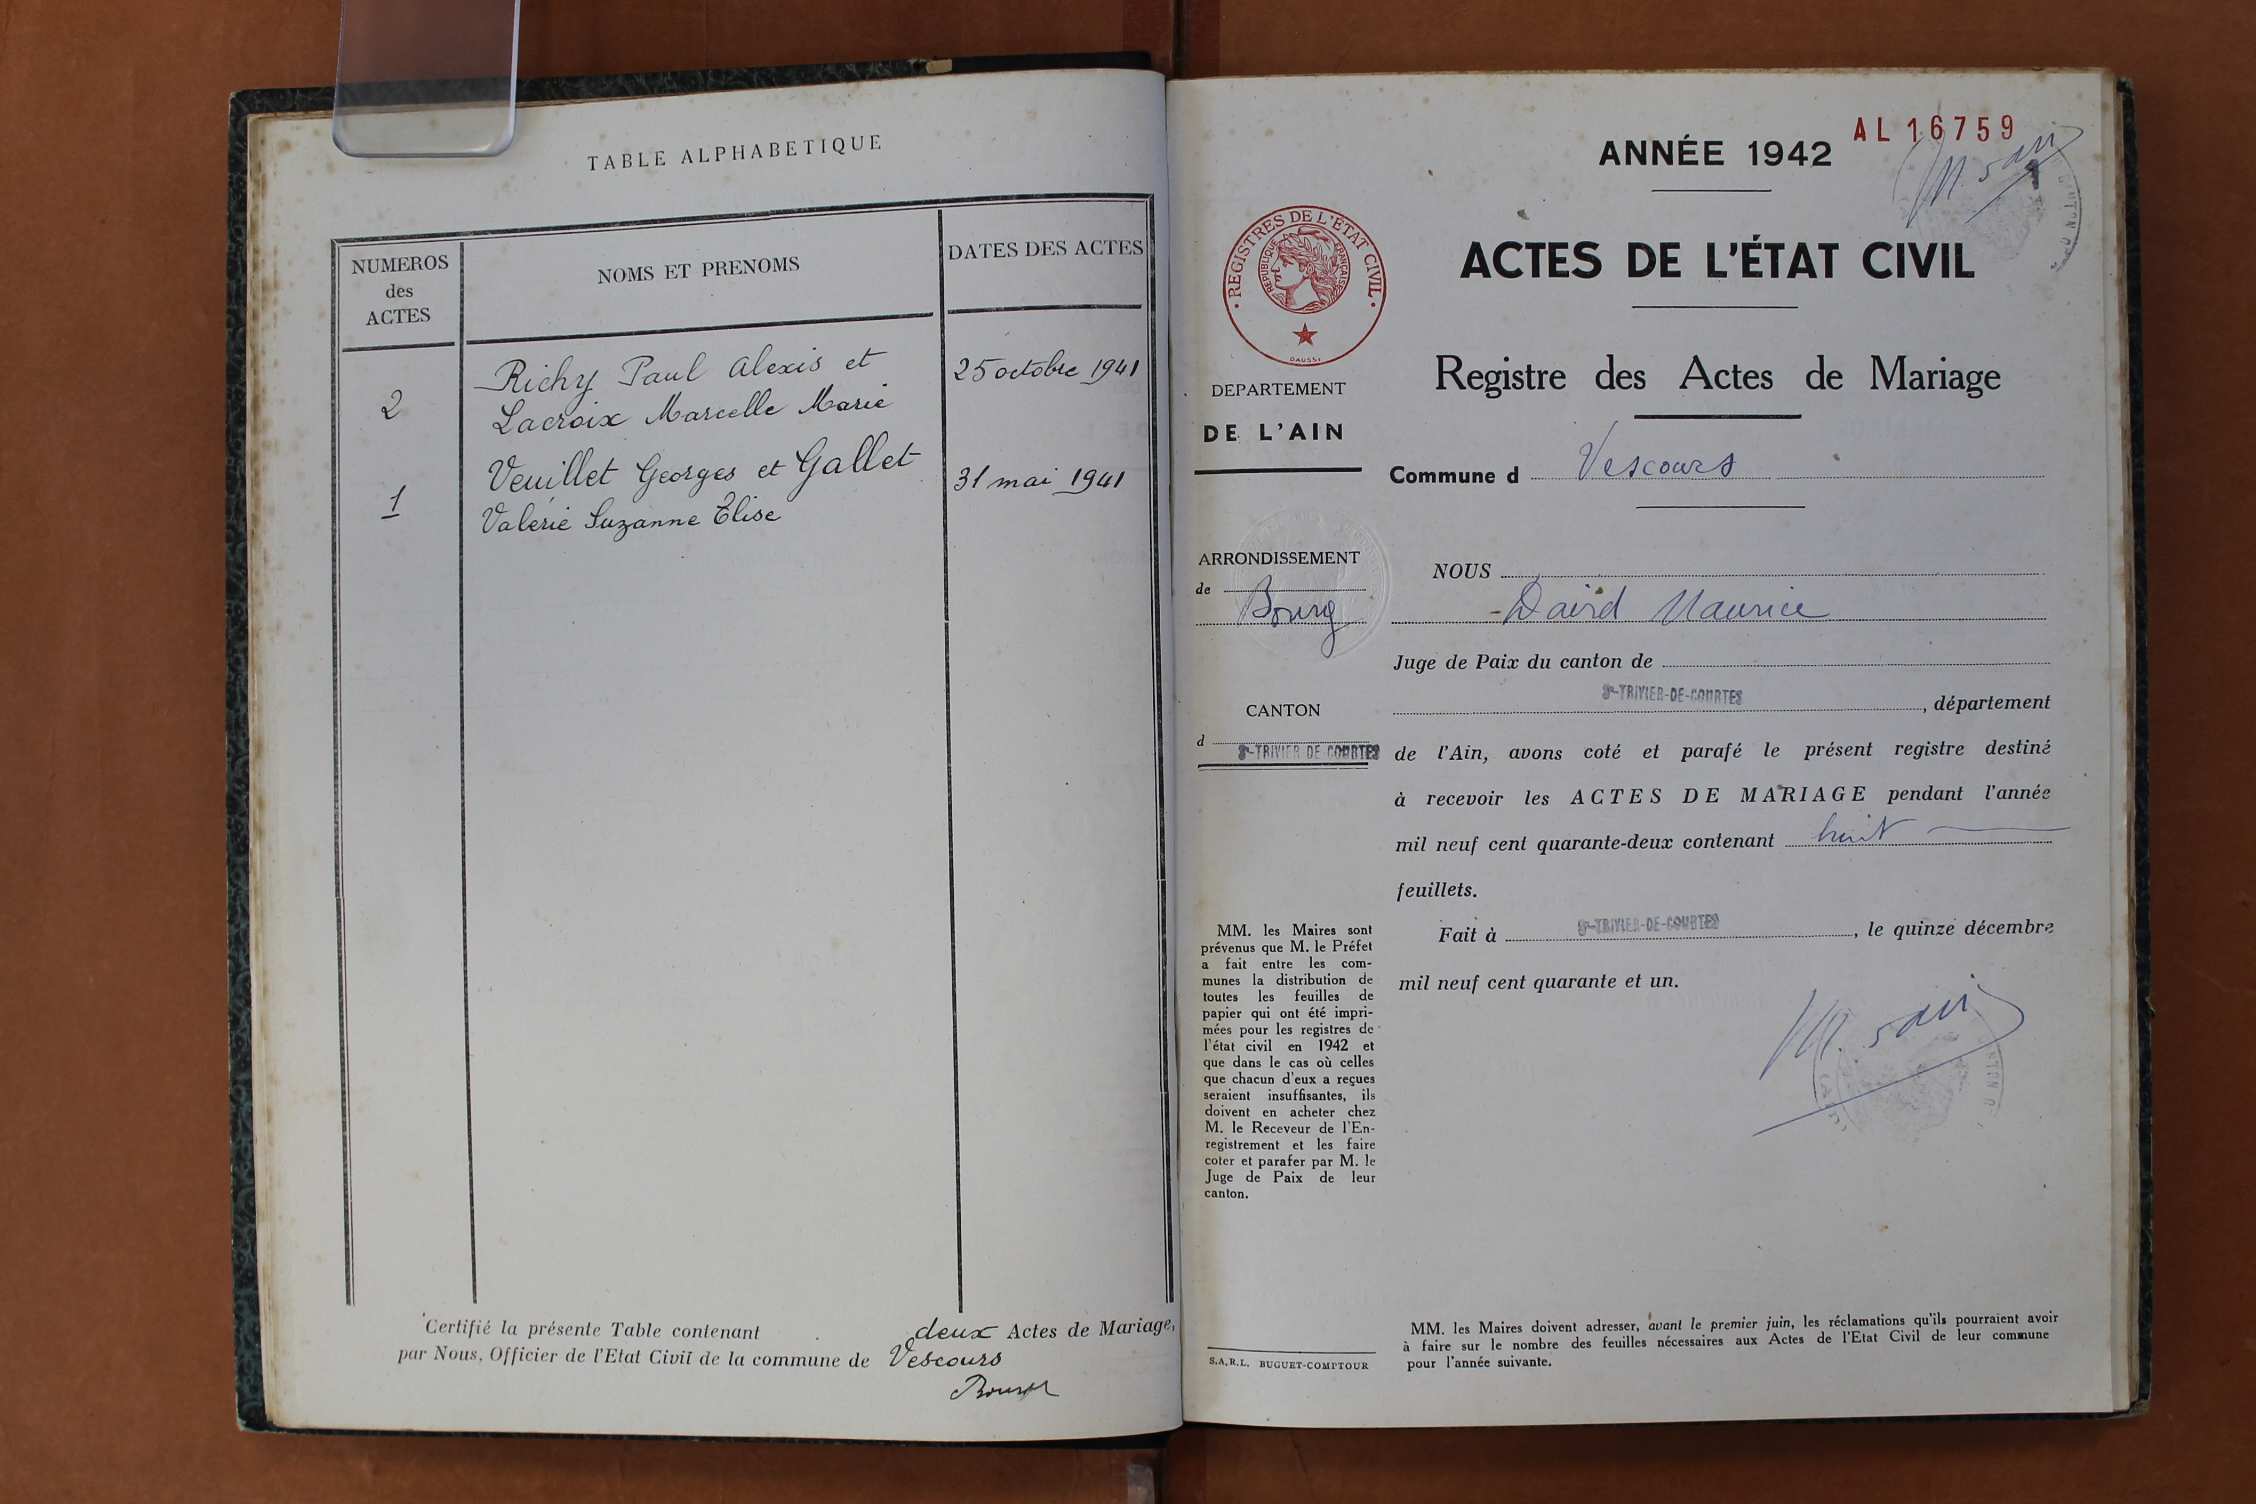 TABLE ALPHABETIQUE
NUMEROS
des
ACTES
NOMS ET PRENOMS
DATES DES ACTES
2
Richy Paul Alexis et
Lacroix Marcelle Marie
25 octobre 1941
1
Veuillet Georges et Gallet
Valérie Suzanne Élise
31 mai 1941
Certifié la présente Table contenant deux Actes de Mariage,
par Nous, Officier de l'Etat Civil de la commune de Vescours
AL 16759
ANNÉE 1942
ACTES DE L'ÉTAT CIVIL
Registre des Actes de Mariage
Commune d Vescours
REGISTRES DE L'ÉTAT CIVIL
RÉPUBLIQUE FRANÇAISE
DAUSSI
DEPARTEMENT
DE L'AIN
ARRONDISSEMENT
de
Bourg
CANTON
d
St-TRIVIER-DE-COURTES
MM. les Maires sont
prévenus que M. le Préfet
a fait entre les com-
munes la distribution de
toutes les feuilles de
papier qui ont été impri-
mées pour les registres de
l'état civil en 1942 et
que dans le cas où celles
que chacun d'eux a reçues
seraient insuffisantes, ils
doivent en acheter chez
M. le Receveur de l'En-
registrement et les faire
coter et parafer par M. le
Juge de Paix de leur
canton.
S.A.R.L. BUGUET-COMPTOUR
NOUS
Maurice
Juge de Paix du canton de
St-TRIVIER-DE-COURTES, département
de l'Ain, avons coté et parafé le présent registre destiné
à recevoir les ACTES DE MARIAGE pendant l'année
mil neuf cent quarante-deux contenant huit
feuillets.
Fait à St-TRIVIER-DE-COURTES, le quinze décembre
mil neuf cent quarante et un.
MM. les Maires doivent adresser, avant le premier juin, les réclamations qu'ils pourraient avoir
à faire sur le nombre des feuilles nécessaires aux Actes de l'Etat Civil de leur commune
pour l'année suivante.